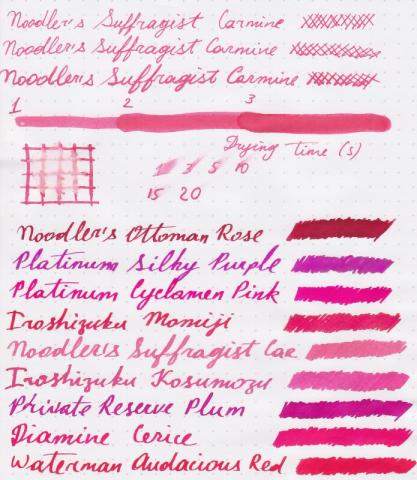 Noodler's Suffragist Carmine
Noodler's Suffragist Carmine
Noodler's Suffragist Carmine
1 2 3
Drying time (s)
1 3 5 10
15 20
Noodler's Ottoman Rose
Platinum Silky Purple
Platinum Cyclamen Pink
Iroshizuku Momiji
Noodler's Suffragist Car
Iroshizuku Kosumozu
Private Reserve Plum
Diamine Cerice
Waterman Audacious Red